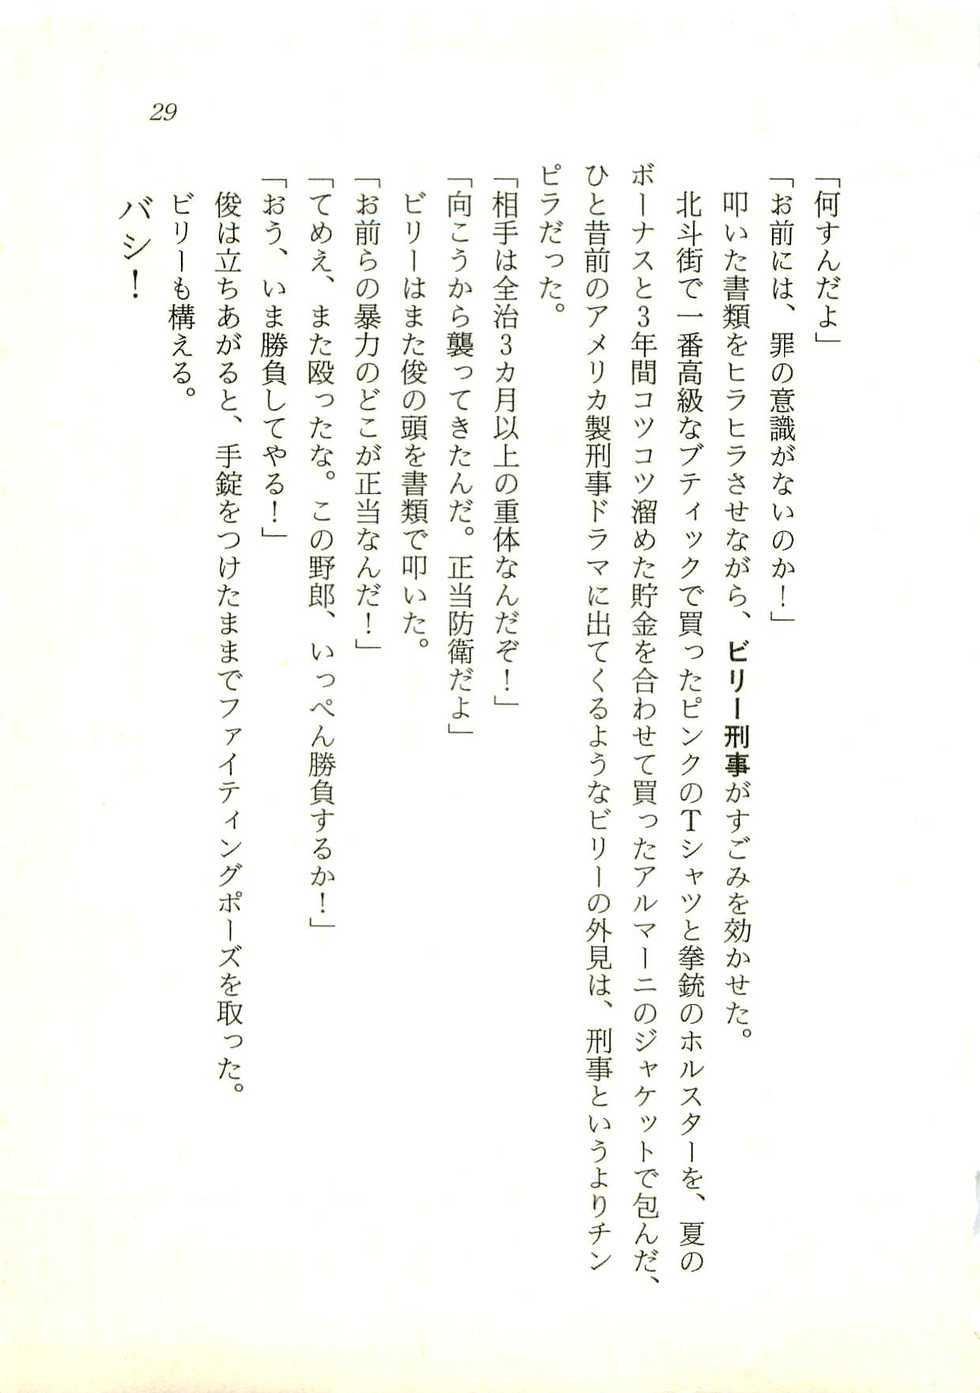 29
「何すんだよ」
「お前には、罪の意識がないのか！」
叩いた書類をヒラヒラさせながら、ビリー刑事がすごみを効かせた。
北斗街で一番高級なブティックで買ったピンクのTシャツと拳銃のホルスターを、夏の
ボーナスと3年間コツコツ溜めた貯金を合わせて買ったアルマーニのジャケットで包んだ、
ひと昔前のアメリカ製刑事ドラマに出てくるようなビリーの外見は、刑事というよりチン
ピラだった。
「相手は全治3カ月以上の重体なんだぞ！」
「向こうから襲ってきたんだ。正当防衛だよ」
ビリーはまた俊の頭を書類で叩いた。
「お前らの暴力のどこが正当なんだ！」
「てめえ、また殴ったな。この野郎、いっぺん勝負するか！」
「おう、いま勝負してやる！」
俊は立ちあがると、手錠をつけたままでファイティングポーズを取った。
ビリーも構える。
バシ！